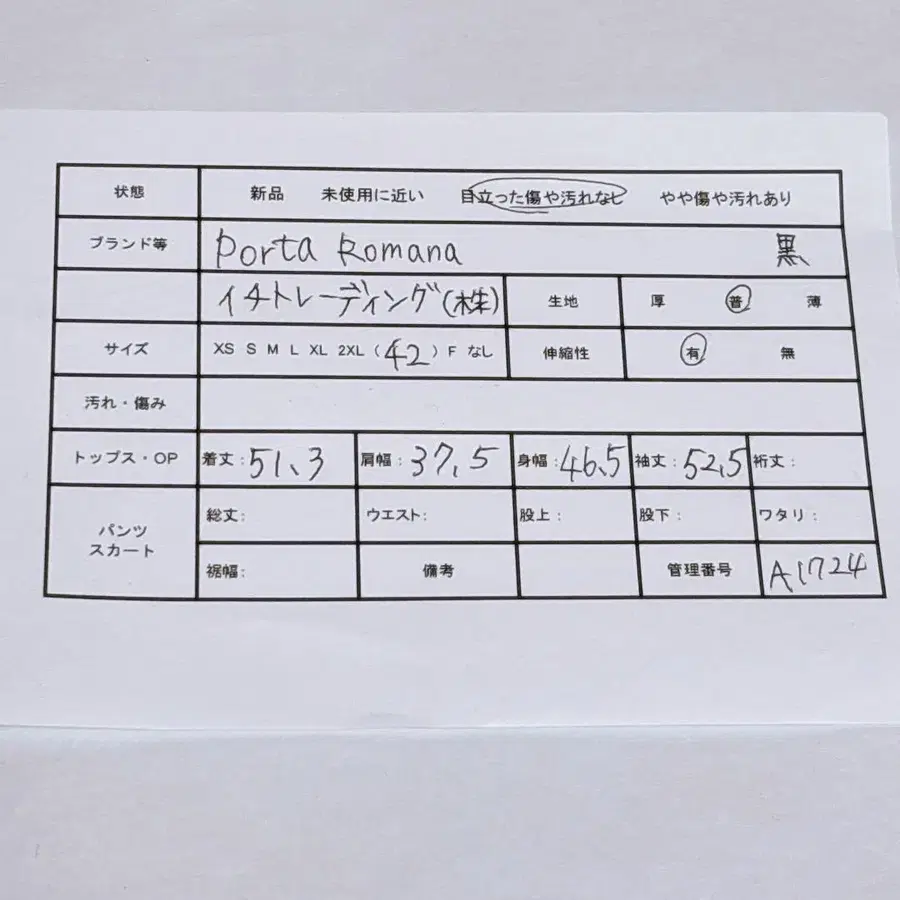 状態 新品 未使用に近い 目立った傷や汚れなし やや傷や汚れあり
ブランド等 Porta Romana 黒
イチトレーディング(株) 生地 厚 普 薄
サイズ XS S M L XL 2XL (42) F なし 伸縮性 有 無
汚れ・傷み
トップス・OP 着丈:51.3 肩幅:37.5 身幅:46.5 袖丈:52.5 裄丈:
パンツ
スカート
総丈: ウエスト: 股上: 股下: ワタリ:
裾幅: 備考 管理番号 A1724